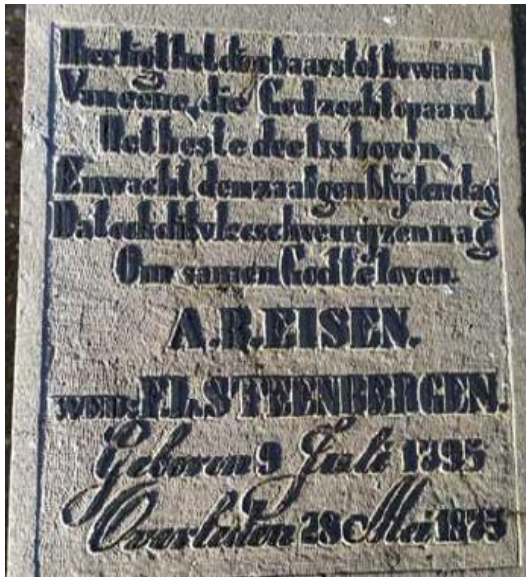 Hier ligt het dierbaar stof bewaard
Van eene, die God zocht op aard.
Het beste deel is boven,
En wacht den zaalgen blijden dag
Dat ook dit vleesch verrijzen mag
Om samen God te loven.
A.R.EISEN.
WED: STEENBERGEN.
Geboren 9 Juli 1795
Overleden 28 Mei 1875